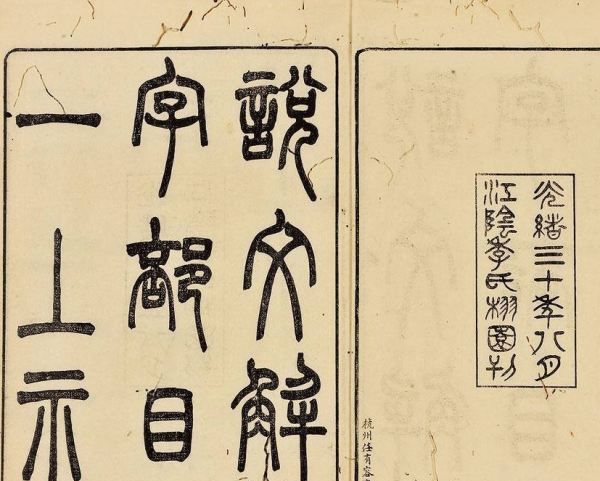 光緒三十年八月
江陰李氏栩園刊
杭州任有容
說文解
字部目
一上示